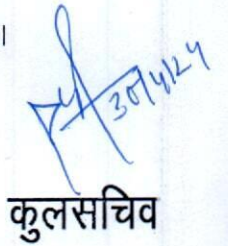 30/4/24
कुलसचिव